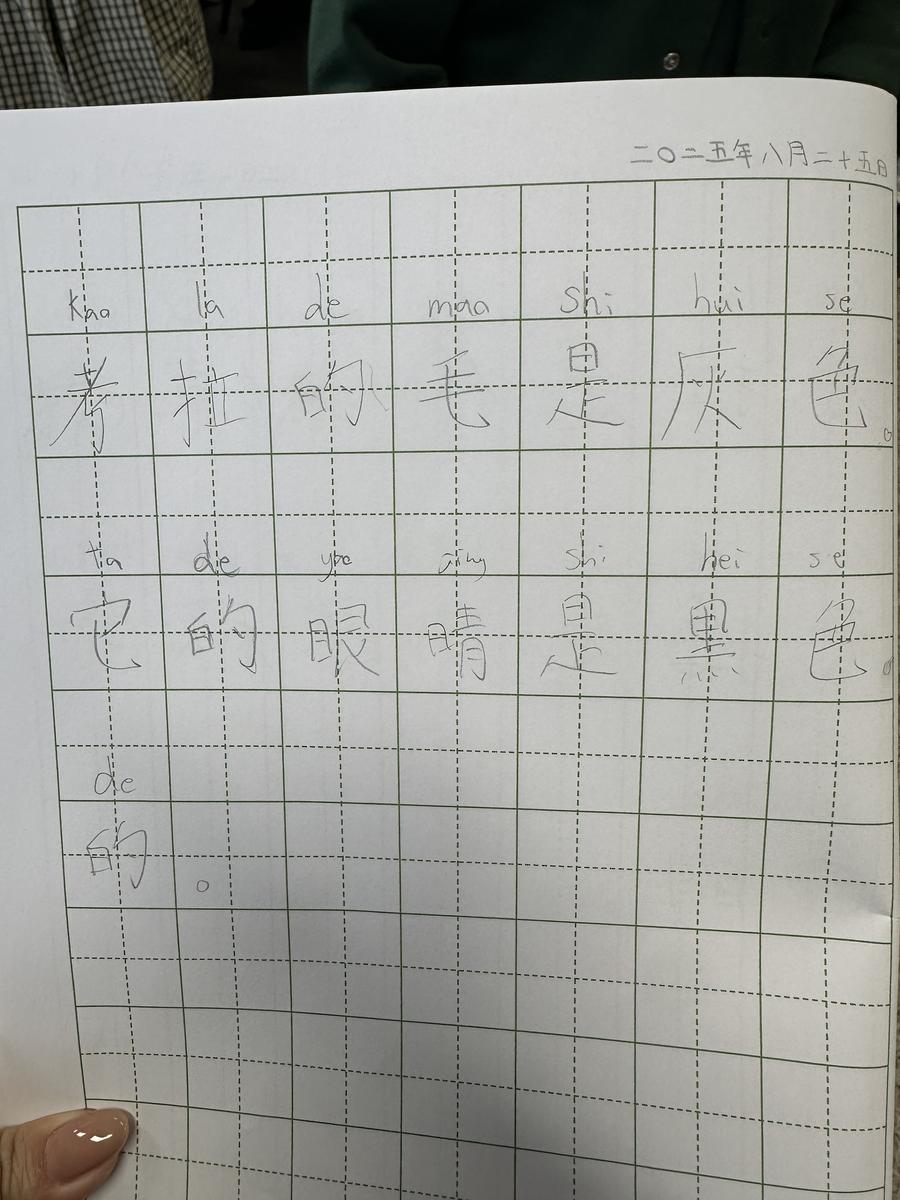 二〇二五年八月二十五日
kaa la de maa shi hui se
考拉的毛是灰色。
ta de shi hei se
它的眼睛是黑色。
de
的。